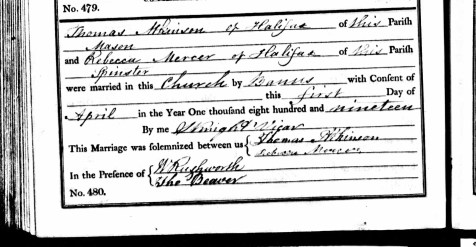 No. 479.
Thomas Atkinson of Halifax of this Parish
Mason
and Rebecca Mercer of Halifax of this Parish
Spinster
were married in this Church by Banns with Consent of
this first Day of
April in the Year One thousand eight hundred and nineteen
By me Knight Vicar
This Marriage was solemnized between us { Thomas Atkinson
Rebecca Mercer
In the Presence of { W Rushworth
Tho Beaver
No. 480.